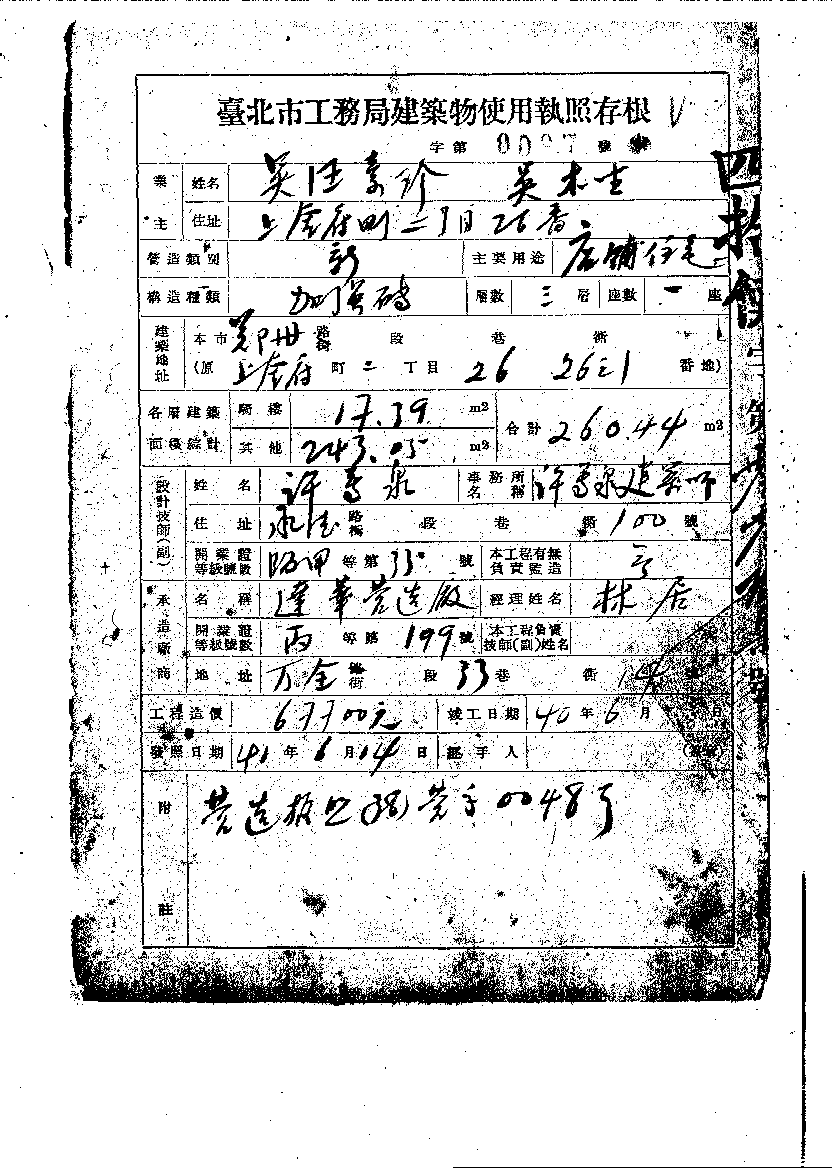 臺北市工務局建築物使用執照存根
字第 0097 號
業主 姓名 吳 吳木生
住址 上奎府町二丁目26番
營造類別 新 主要用途 店鋪住宅
構造種類 加強磚 層數 三層 座數 一座
建築地址 本市 鄭州 路街 段 巷 衖
(原 上奎府町二丁目 26 26之1 番地)
各層建築面積綜計 騎樓 17.39 m2 合計 260.44 m2
其他 243.05 m2
設計技師(副) 姓名 許 泉 事務所名稱 許 泉建築師
住址 路街 段 巷 衖 100 號
開業證等級號數 甲 等第 35 號 本工程有無負責監造
承造廠商 名稱 達華營造廠 經理姓名 林居
開業證等級號數 丙 等第 199 號 本工程負責技師(副)姓名
地址 万全 路街 段 33 巷 衖 14
工程造價 67700元 竣工日期 40年6月
發照日期 41年6月14日 經手人
附註 營造執照 營字0048号